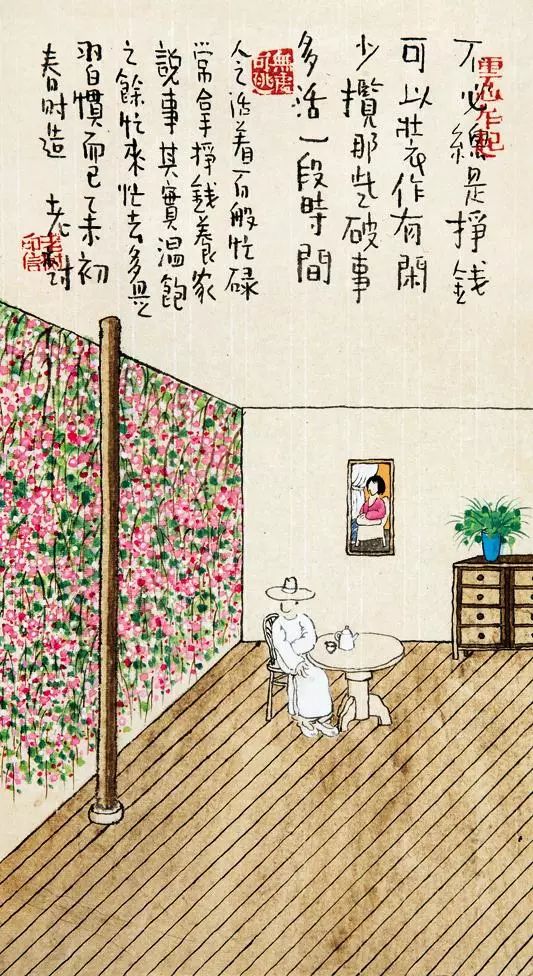 不必總是掙錢
可以裝作有閑
少攬那些破事
多活一段時間
無處可逃
人之活着百般忙碌
常拿掙錢養家
説事其實溫飽
之餘忙來忙去多是
習慣而已乙未初
春时造 老树
老樹印信